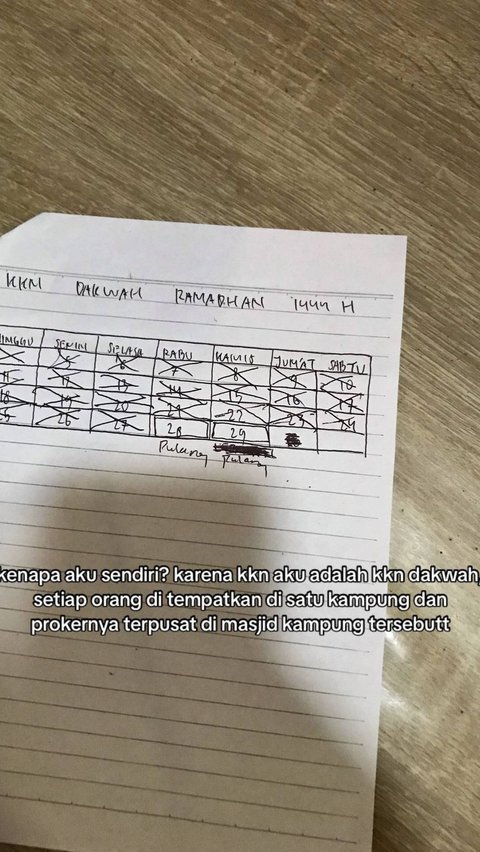 KKN DAKWAH RAMADHAN 1444 H
INGGU SENIN SELASA RABU KAMIS JUM'AT SABTU
5 6 7 8 9 10
11 12 13 14 15 16 17
18 19 20 21 22 23 24
25 26 27 28 29
Pulang Pulang
kenapa aku sendiri? karena kkn aku adalah kkn dakwah,
setiap orang di tempatkan di satu kampung dan
prokernya terpusat di masjid kampung tersebutt